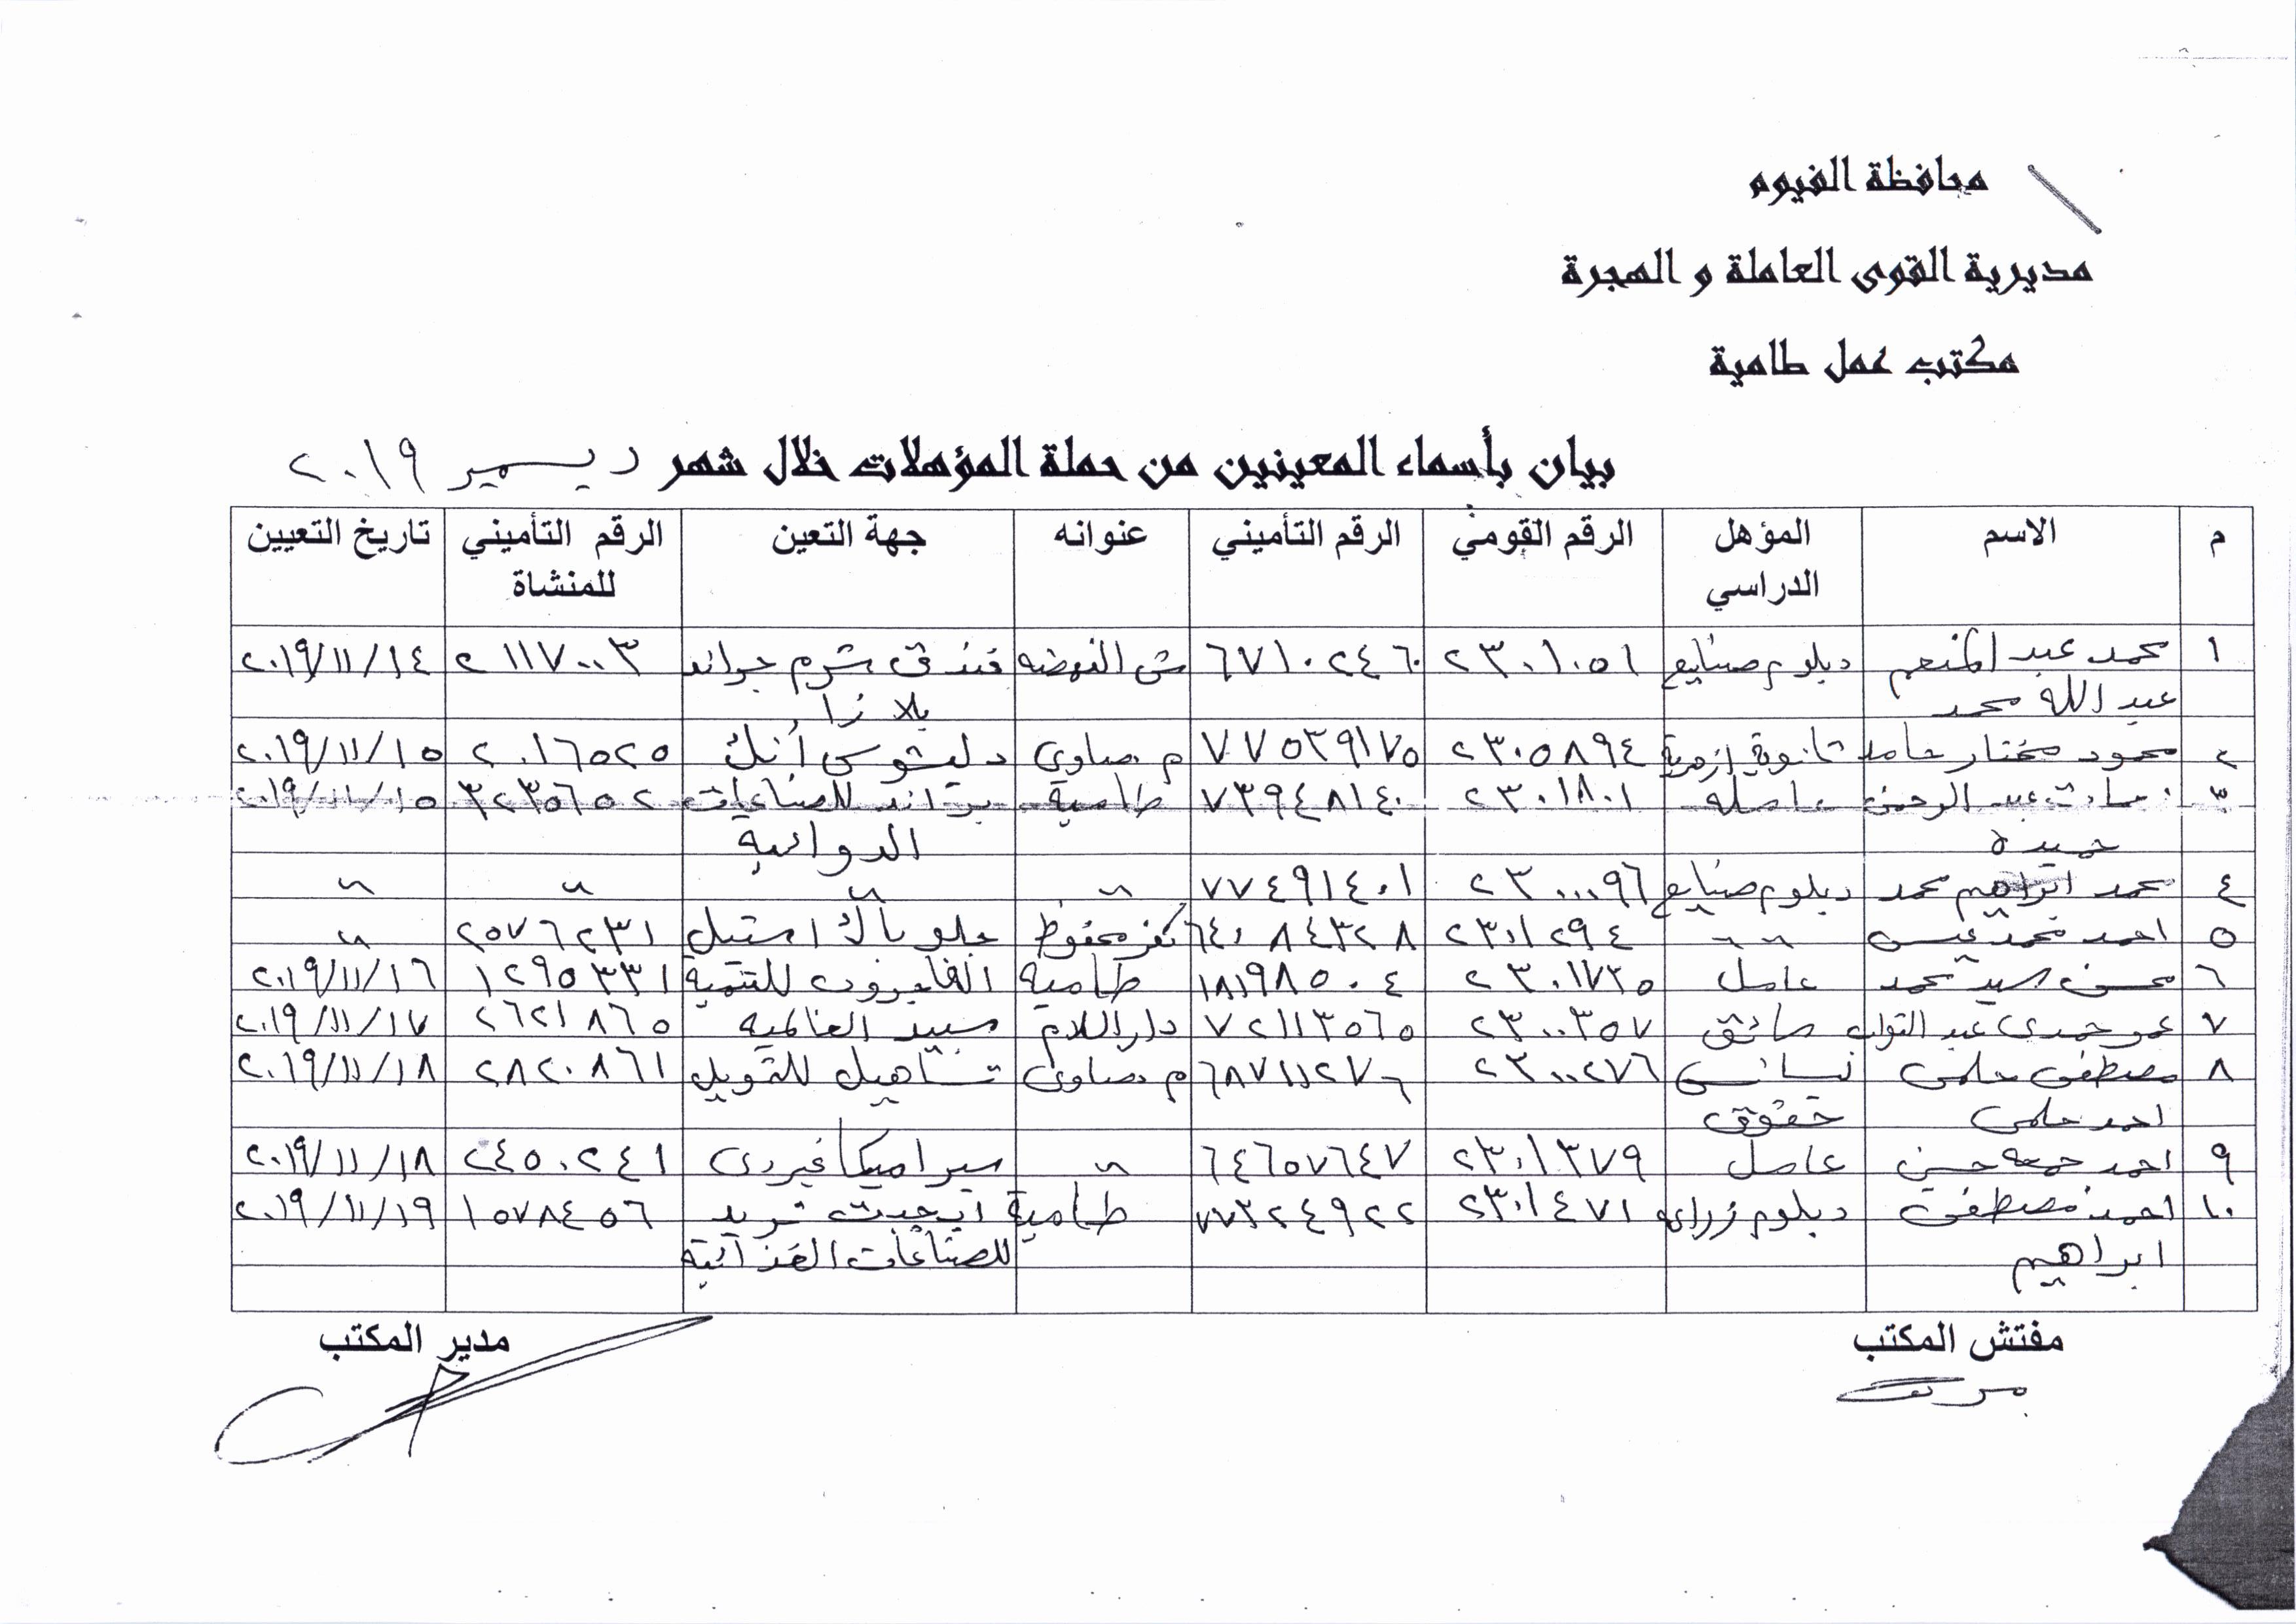 محافظة الفيوم
مديرية القوى العاملة و الهجرة
مكتب عمل طامية
بيان بأسماء المعينين من حملة المؤهلات خلال شهر ديسمبر ٢٠١٩
م الاسم المؤهل الدراسي الرقم القومي الرقم التأميني عنوانه جهة التعين الرقم التأميني للمنشاة تاريخ التعيين
١ محمد عبد المنعم دبلوم صنايع ٢٣٠١٠٥١ ٦٧١٠٢٤٦٠ ش النهضه فندق شرم جراند ٢١١٧٠٠٣ ٢٠١٩/١١/١٤
عبد الله محمد بلازا
٢ محمود مختار حامد ثانوية ازهرية ٢٣٠٥٨٩٤ ٧٧٥٣٩١٧٥ م صاوى ٢٠١٦٥٢٥ ٢٠١٩/١١/١٥
٣ عبد الرحمن عامله ٢٣٠١٨٠١ ٧٣٩٤٨١٤٠ طامية براند للصناعات ٣٢٣٥٦٥٢ ٢٠١٩/١١/١٥
حميده الدوائيه
٤ محمد ابراهيم محمد دبلوم صنايع ٢٣٠٠٠٩٦ ٧٧٤٩١٤٠١ " " " "
٥ احمد محمد عيسى " " ٢٣٠١٢٩٤ ٦٤٠٨٤٣٢٨ كفر محفوظ جلو باك استيل ٢٥٧٦٢٣١ "
٦ محسن سيد محمد عامل ٢٣٠١٧٣٥ ١٨١٩٨٥٠٤ طامية للتنمية ١٢٩٥٣٣١ ٢٠١٩/١١/١٦
٧ عمر حمدى عبد التواب سائق ٢٣٠٠٣٥٧ ٧٢١١٣٥٦٥ دار السلام سبيد العالميه ٢٦٢١٨٦٥ ٢٠١٩/١١/١٧
٨ مصطفى حلمى ليسانس ٢٣٠٠٢٧٦ ٦٨٧١١٢٧٦ م صاوى تساهيل للتمويل ٢٨٢٠٨٦١ ٢٠١٩/١١/١٨
احمد حلمى حقوق
٩ احمد جمعه حسين عامل ٢٣٠١٣٧٩ ٦٤٦٥٧٦٤٧ " سيراميكا ٢٤٥٠٢٤١ ٢٠١٩/١١/١٨
١٠ احمد مصطفى دبلوم زراعه ٢٣٠١٤٧١ ٧٧٣٢٤٩٢٢ طامية ايجيبت تريد ١٥٧٨٤٥٦ ٢٠١٩/١١/١٩
ابراهيم للصناعات الغذائية
مفتش المكتب مدير المكتب